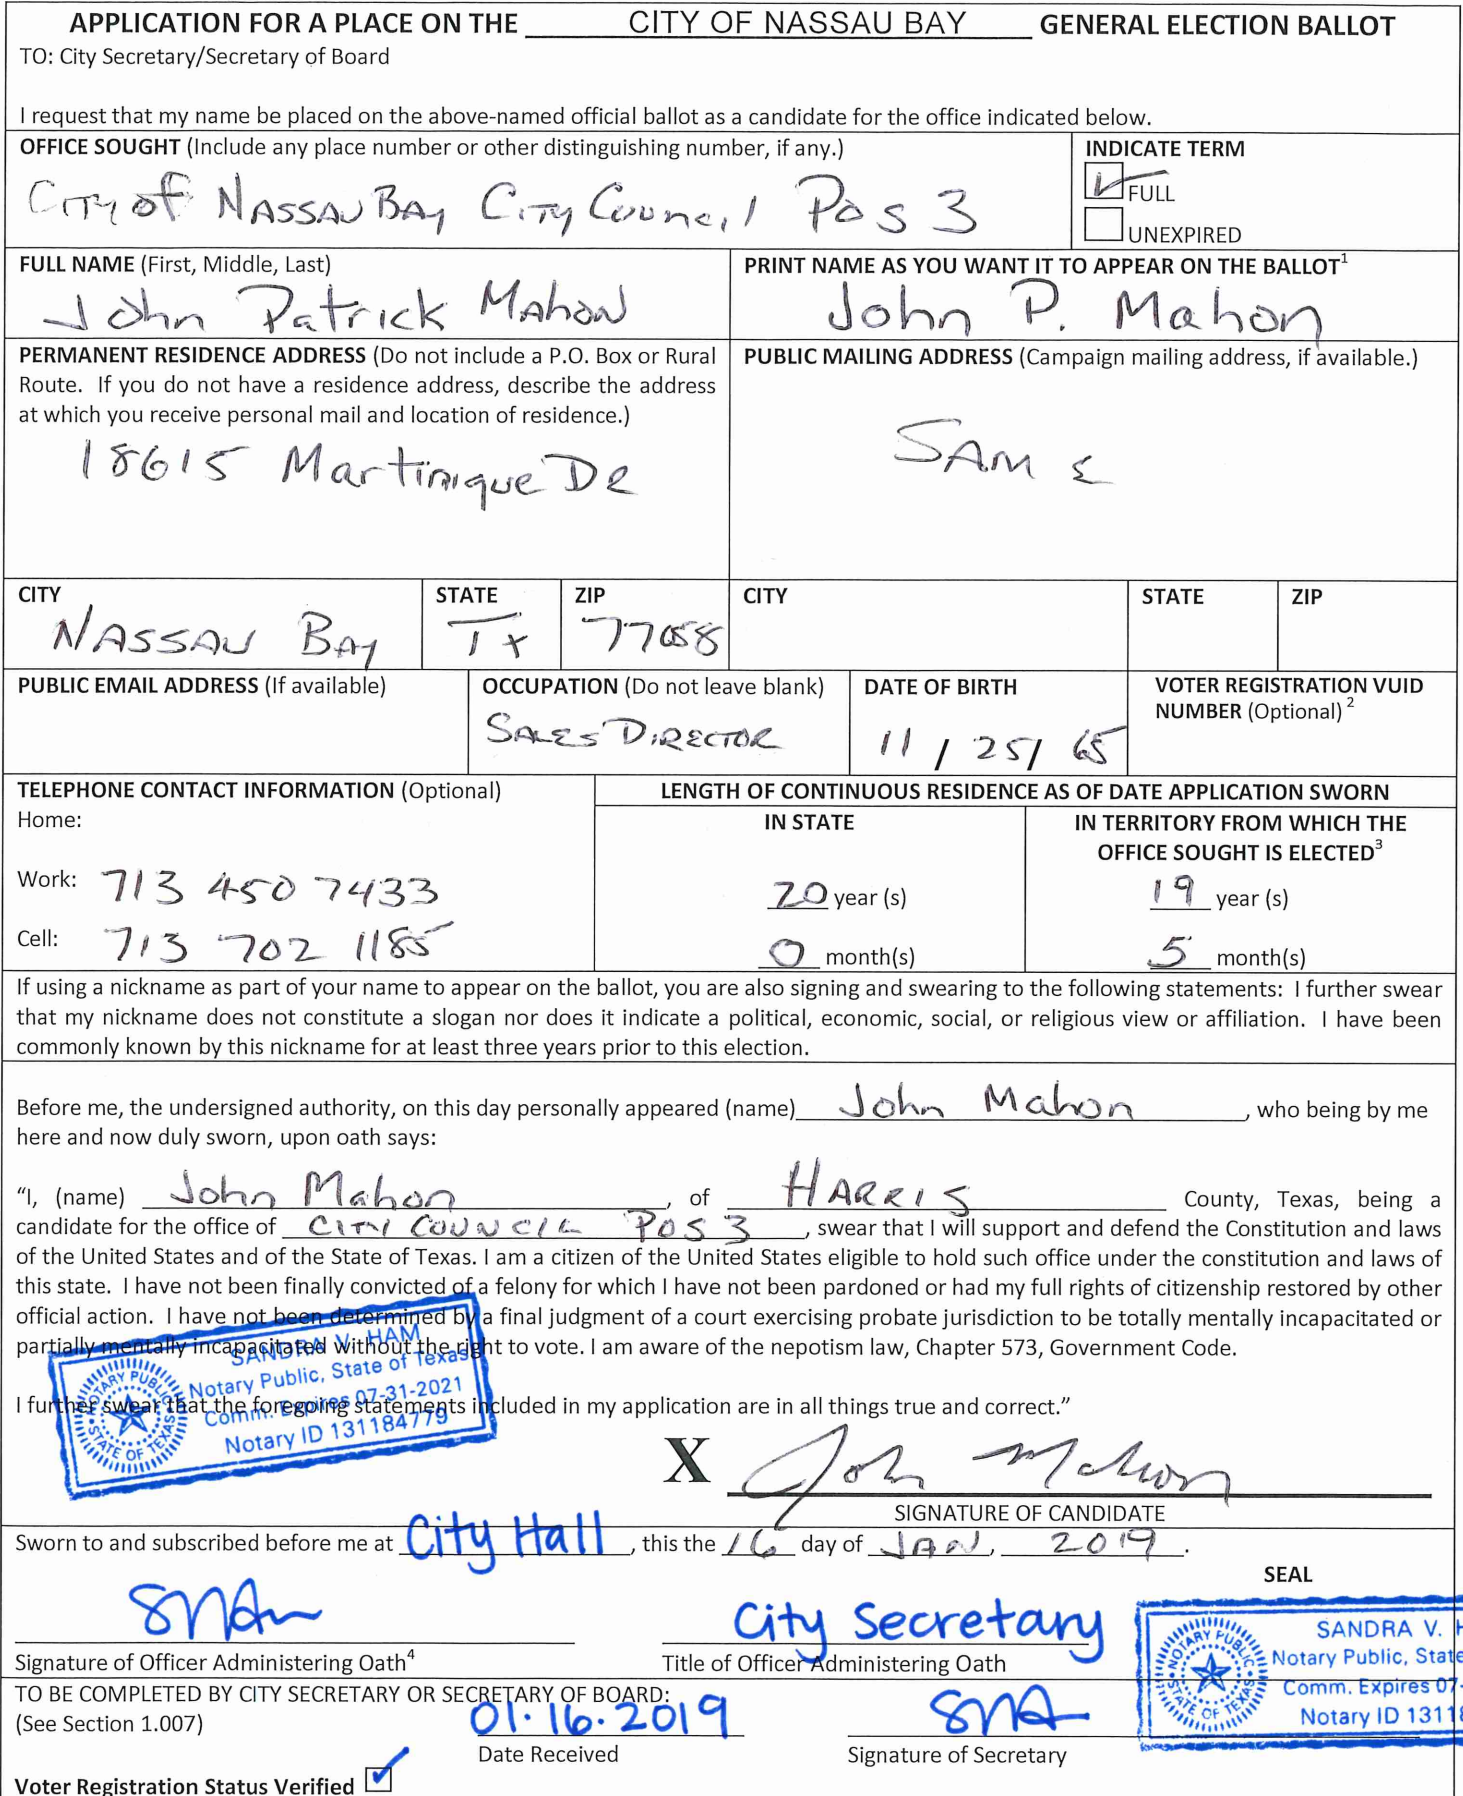 APPLICATION FOR A PLACE ON THE CITY OF NASSAU BAY GENERAL ELECTION BALLOT
TO: City Secretary/Secretary of Board
I request that my name be placed on the above-named official ballot as a candidate for the office indicated below.
OFFICE SOUGHT (Include any place number or other distinguishing number, if any.)
City of Nassau Bay City Council Pos 3
INDICATE TERM
FULL
UNEXPIRED
FULL NAME (First, Middle, Last)
John Patrick Mahon
PRINT NAME AS YOU WANT IT TO APPEAR ON THE BALLOT1
John P. Mahon
PERMANENT RESIDENCE ADDRESS (Do not include a P.O. Box or Rural
Route. If you do not have a residence address, describe the address
at which you receive personal mail and location of residence.)
18615 Martinique DR
PUBLIC MAILING ADDRESS (Campaign mailing address, if available.)
SAME
CITY
NASSAU BAY
STATE
Tx
ZIP
77058
CITY
STATE
ZIP
PUBLIC EMAIL ADDRESS (If available)
OCCUPATION (Do not leave blank)
SALES DIRECTOR
DATE OF BIRTH
11 / 25 / 65
VOTER REGISTRATION VUID
NUMBER (Optional) 2
TELEPHONE CONTACT INFORMATION (Optional)
Home:
Work: 713 450 7433
Cell: 713 702 1185
LENGTH OF CONTINUOUS RESIDENCE AS OF DATE APPLICATION SWORN
IN STATE
20 year (s)
0 month(s)
IN TERRITORY FROM WHICH THE
OFFICE SOUGHT IS ELECTED3
19 year (s)
5 month(s)
If using a nickname as part of your name to appear on the ballot, you are also signing and swearing to the following statements: I further swear
that my nickname does not constitute a slogan nor does it indicate a political, economic, social, or religious view or affiliation. I have been
commonly known by this nickname for at least three years prior to this election.
Before me, the undersigned authority, on this day personally appeared (name) John Mahon, who being by me
here and now duly sworn, upon oath says:
"I, (name) John Mahon, of HARRIS County, Texas, being a
candidate for the office of CITY COUNCIL POS 3, swear that I will support and defend the Constitution and laws
of the United States and of the State of Texas. I am a citizen of the United States eligible to hold such office under the constitution and laws of
this state. I have not been finally convicted of a felony for which I have not been pardoned or had my full rights of citizenship restored by other
official action. I have not been determined by a final judgment of a court exercising probate jurisdiction to be totally mentally incapacitated or
partially mentally incapacitated without the right to vote. I am aware of the nepotism law, Chapter 573, Government Code.
I further swear that the foregoing statements included in my application are in all things true and correct."
SANDRA V. HAM
Notary Public, State of Texas
Comm. Expires 07-31-2021
Notary ID 131184779
NOTARY PUBLIC
STATE OF TEXAS
X John Mahon
SIGNATURE OF CANDIDATE
Sworn to and subscribed before me at City Hall, this the 16 day of JAN, 2019.
SEAL
City Secretary
Signature of Officer Administering Oath4
Title of Officer Administering Oath
SANDRA V. H
Notary Public, State
Comm. Expires 07-
Notary ID 13118
NOTARY PUBLIC
STATE OF TEXAS
TO BE COMPLETED BY CITY SECRETARY OR SECRETARY OF BOARD:
(See Section 1.007)
01.16.2019
Date Received
Signature of Secretary
Voter Registration Status Verified